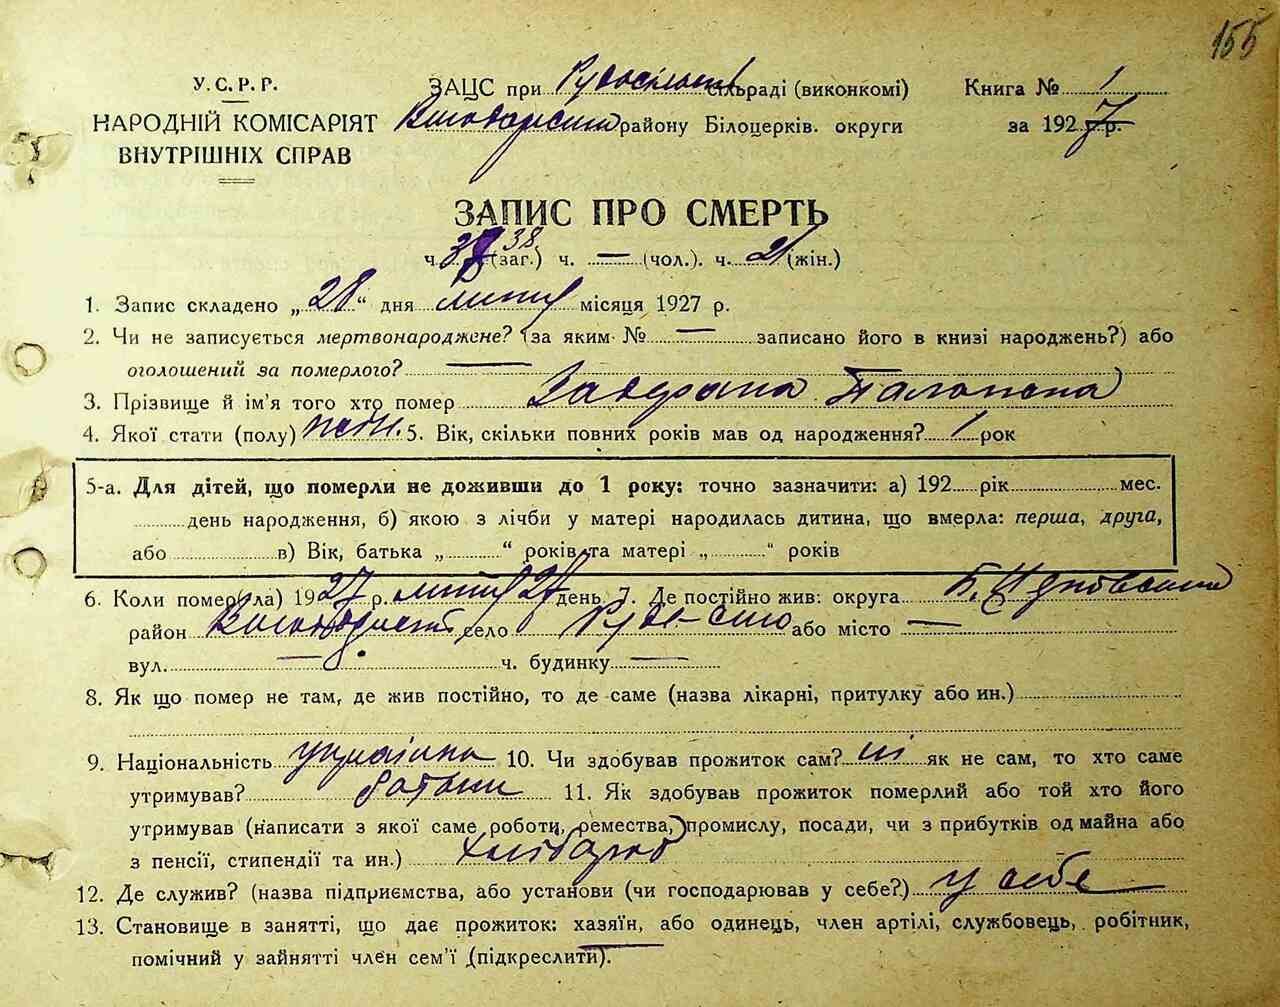 155
У.С.Р.Р.
НАРОДНІЙ КОМІСАРІЯТ
ВНУТРІШНІХ СПРАВ
ЗАЦС при сільраді (виконкомі)
району Білоцерків. округи
Книга № 1
за 1927 р.
ЗАПИС ПРО СМЕРТЬ
ч. 38 (заг.) ч. — (чол.). ч. 21 (жін.)
1. Запис складено „28“ дня липня місяця 1927 р.
2. Чи не записується мертвонароджене? (за яким № — записано його в книзі народжень?) або
оголошений за померлого? —
3. Прізвище й ім'я того хто помер
4. Якої стати (полу) жін. 5. Вік, скільки повних років мав од народження? 1 рок
5-а. Для дітей, що померли не доживши до 1 року: точно зазначити: а) 192 рік мес.
день народження, б) якою з лічби у матері народилась дитина, що вмерла: перша, друга,
або в) Вік, батька „ “ років та матері „ “ років
6. Коли помер(ла) 1927 р. липня день 7. Де постійно жив: округа Б. Церковська
район село Руде-село або місто —
вул. — ч. будинку —
8. Як що помер не там, де жив постійно, то де саме (назва лікарні, притулку або ин.)
9. Національність українка 10. Чи здобував прожиток сам? ні як не сам, то хто саме
утримував? батьки 11. Як здобував прожиток померлий або той хто його
утримував (написати з якої саме роботи, ремества, промислу, посади, чи з прибутків од майна або
з пенсії, стипендії та ин.) хлібороб
12. Де служив? (назва підприємства, або установи (чи господарював у себе?) у себе
13. Становище в занятті, що дає прожиток: хазяїн, або одинець, член артілі, службовець, робітник,
помічний у зайнятті член сем'ї (підкреслити).